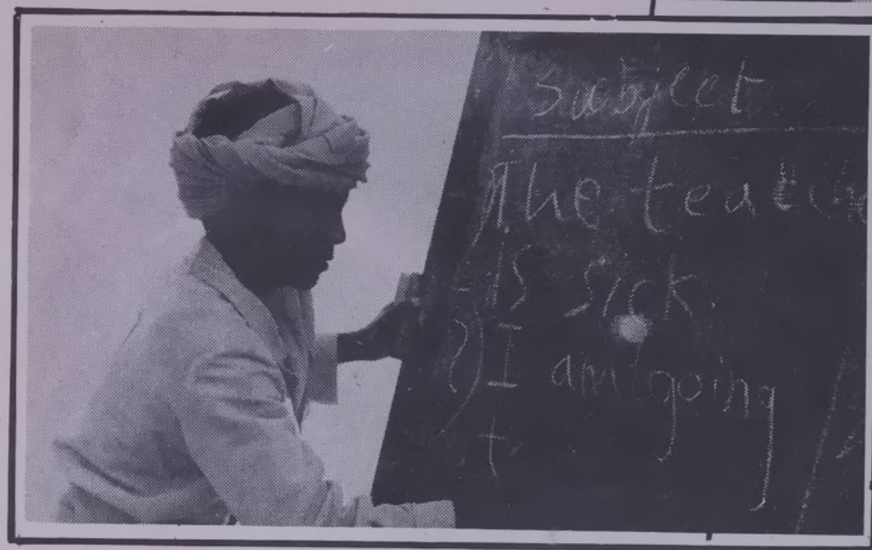 Subject
The teache
is sick.
2) I am going
t